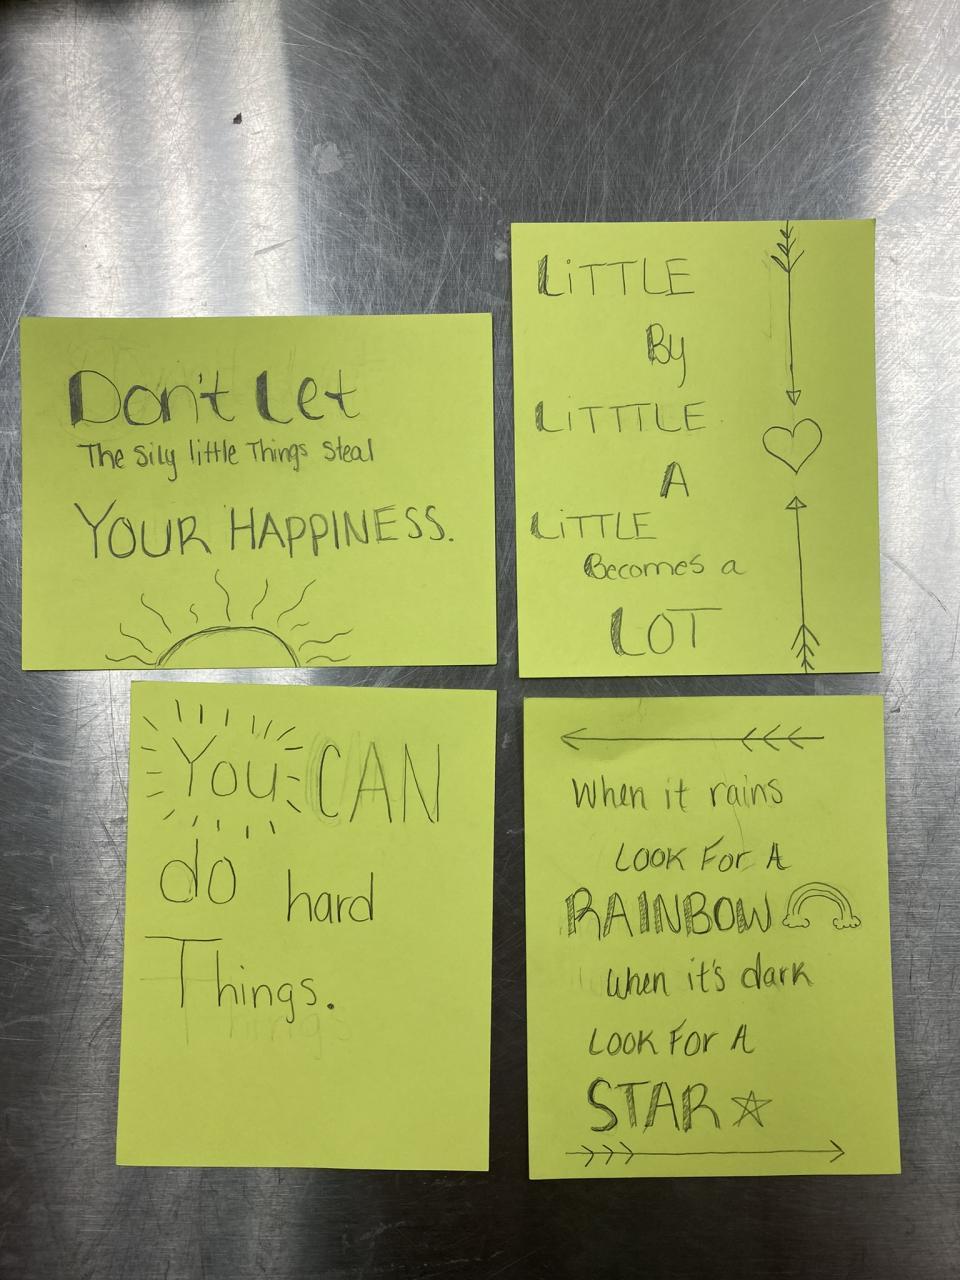 Don't Let
The sily little Things steal
YOUR HAPPINESS.
LiTTLE
By
LiTTTLE
A
LiTTLE
Becomes a
LOT
You CAN
do hard
Things.
When it rains
LOOK For A
RAINBOW
When it's dark
LOOK For A
STAR